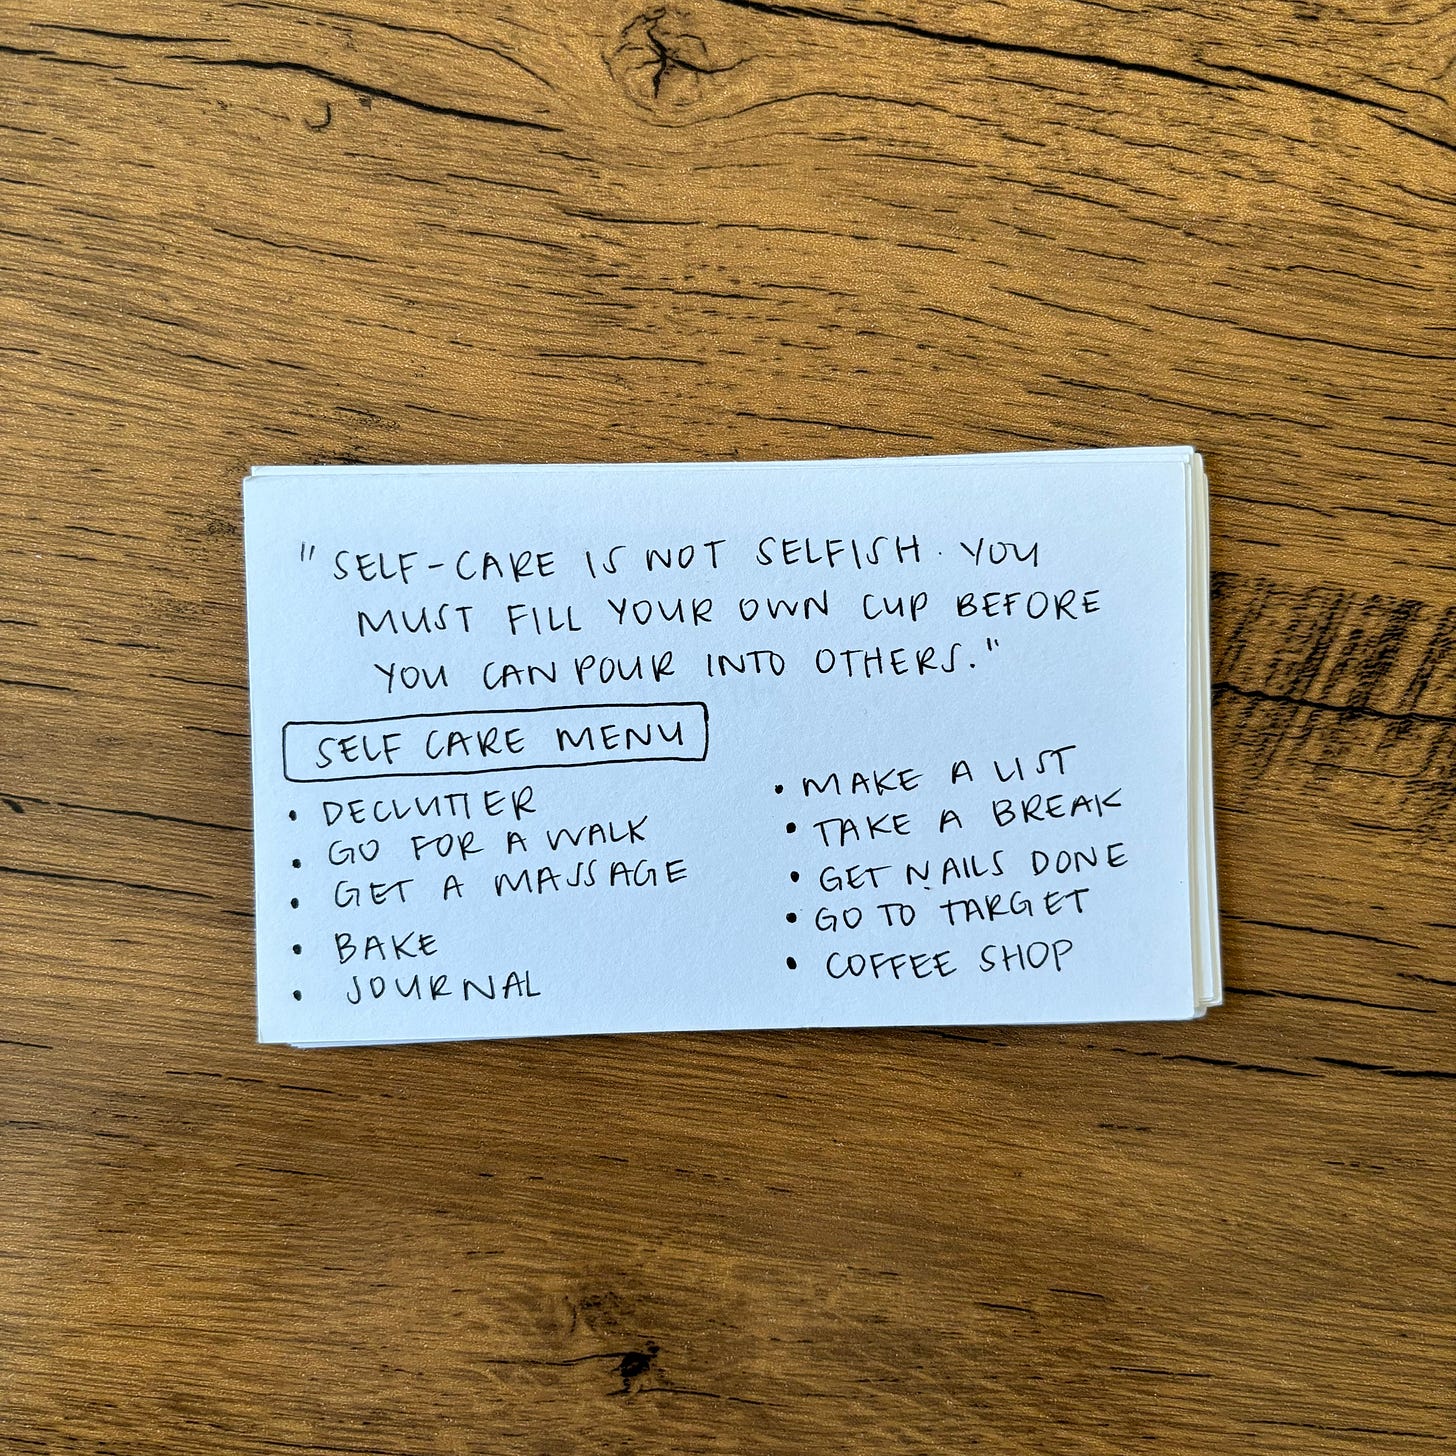 "SELF-CARE IS NOT SELFISH. YOU
MUST FILL YOUR OWN CUP BEFORE
YOU CAN POUR INTO OTHERS."
SELF CARE MENU
• DECLUTTER
• GO FOR A WALK
• GET A MASSAGE
• BAKE
• JOURNAL
• MAKE A LIST
• TAKE A BREAK
• GET NAILS DONE
• GO TO TARGET
• COFFEE SHOP